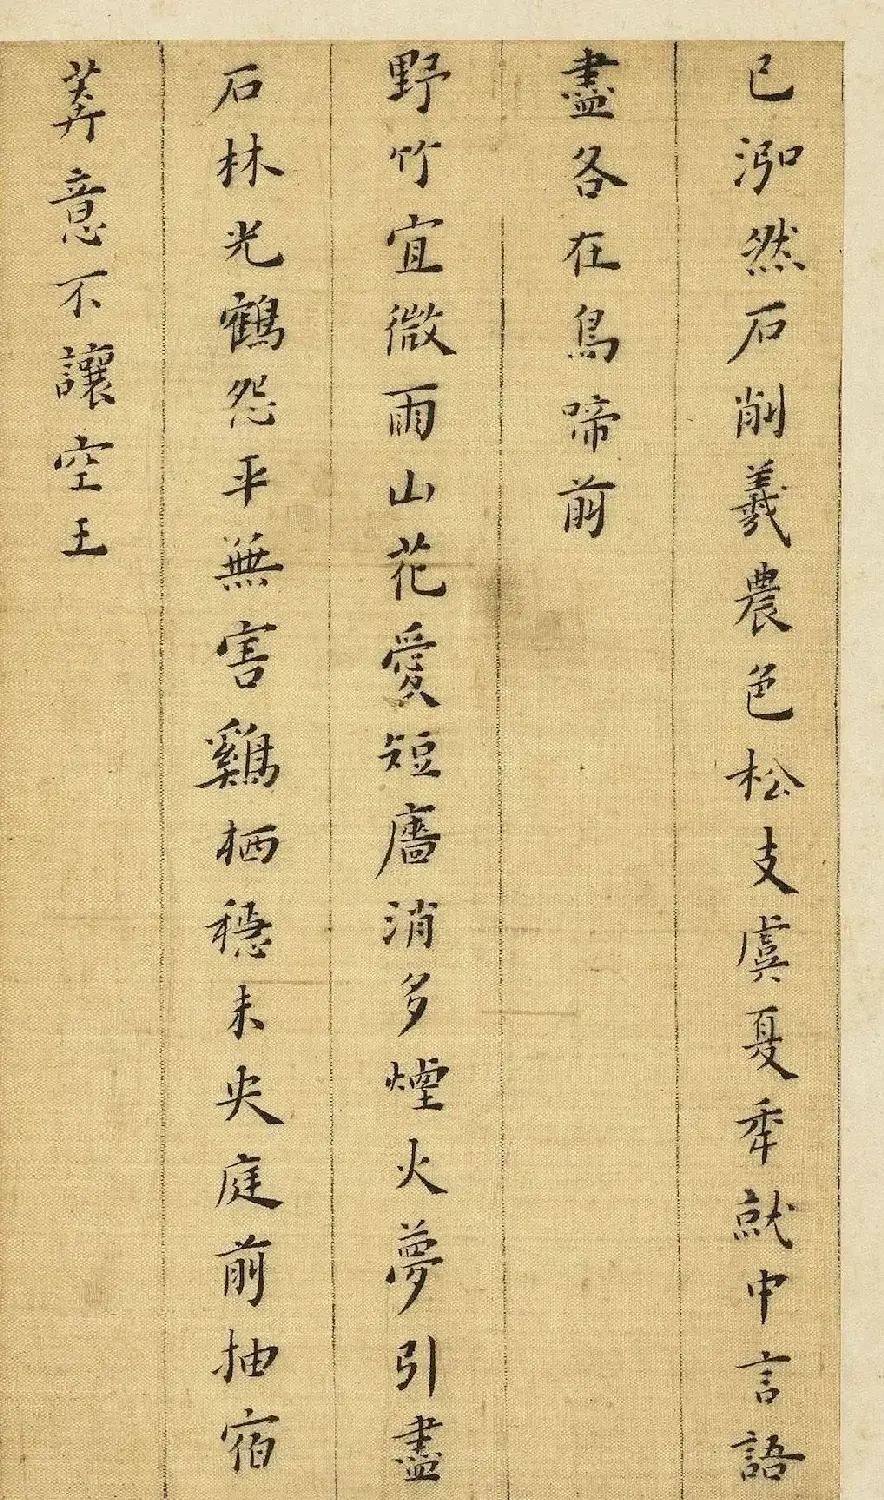 已泓然石削羲農色松支虞夏秊就中言語
盡各在鳥啼前
野竹宜微雨山花愛短廧消多煙火夢引盡
石林光鶴怨平無害鷄栖穩未央庭前抽宿
莽意不讓空王